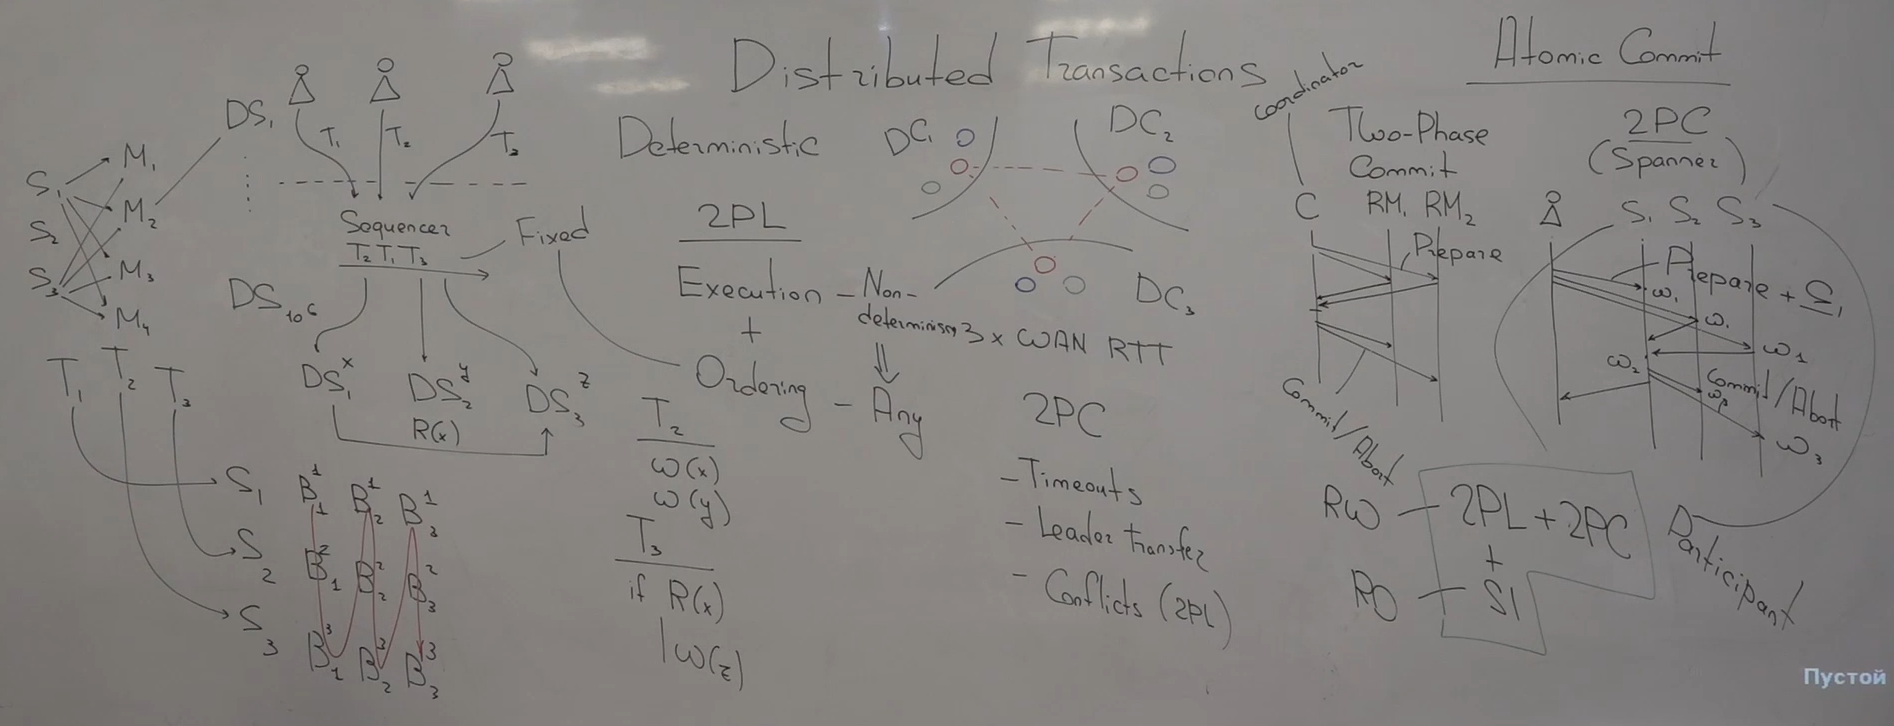 Distributed Transactions
Atomic Commit
Deterministic
DS₁
T₁
T₂
T₃
M₁
M₂
M₃
M₄
S₁
S₂
S₃
Sequencer
T₂ T₁ T₃
Fixed
DS₁₀₆
DS₁ˣ
DS₂ʸ
DS₃ᶻ
R(x)
T₁
T₂
T₃
S₁
S₂
S₃
B₁¹ B₂¹ B₃¹
B₁² B₂² B₃²
B₁³ B₂³ B₃³
2PL
Execution – Non-
determinism
+
⇓
Ordering – Any
T₂
ω(x)
ω(y)
T₃
if R(x)
ω(z)
DC₁
DC₂
DC₃
3 x WAN RTT
2PC
- Timeouts
- Leader transfer
- Conflicts (2PL)
coordinator
Two-Phase
Commit
C RM₁ RM₂
Prepare
Commit/Abort
2PC
(Spanner)
S₁ S₂ S₃
Prepare +
ω₁
ω₁
ω₁
ω₂
Commit/Abort
ω₃
ω₃
RW – 2PL + 2PC
+
RO – SI
Participant
Пустой